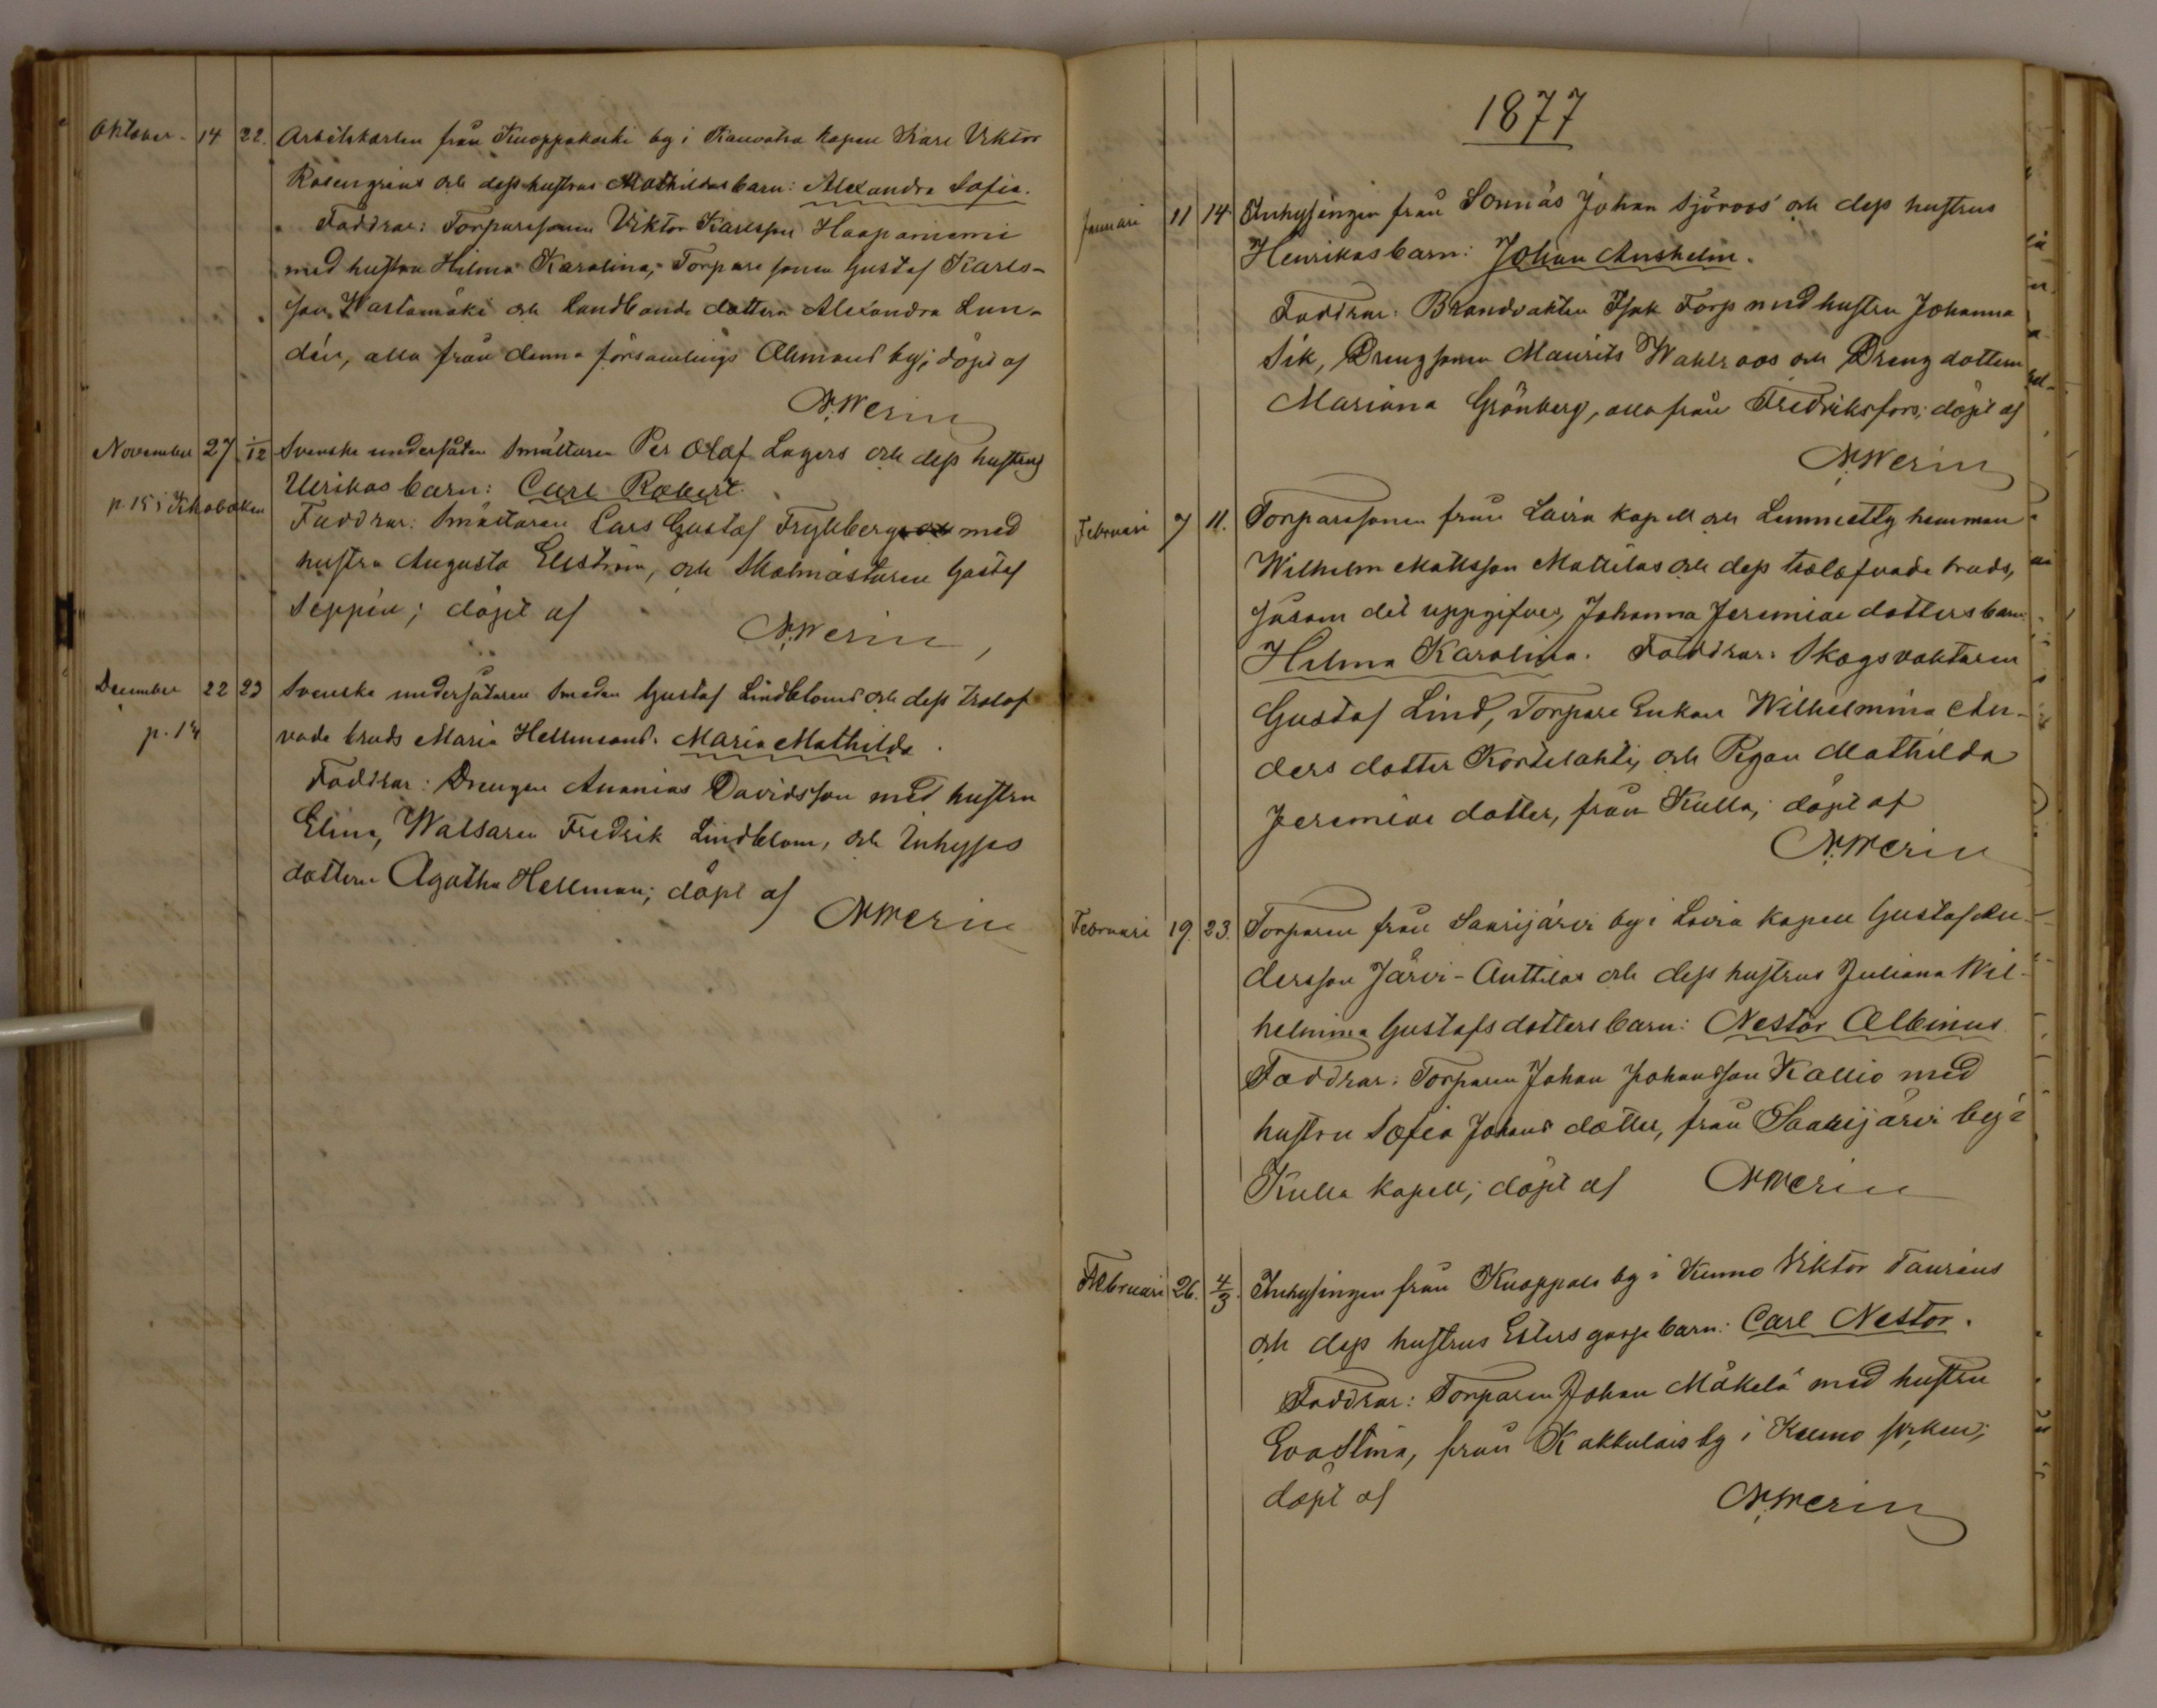 Oktober 14 22. Arbetskarlen från Knoppakoski by i Kauvatsa kapell Karl Viktor
Rosengréns och dess hustrus Mathildas barn: Alexandra Sofia.
Faddrar: Torparesonen Viktor Karlsson Haapaniemi
med hustru Hilma Karolina, Torpare sonen Gustaf Karls-
son Wastamäki och Landbonde dottern Alexandra Lun-
dén, alla från denna församlings by; döpt af
N. Werin
November 27 1/12 Svenske undersåten Smältaren Per Olof Lagers och dess hustrus
Ulrikas barn: Carl Robert.
p. 15 i
Faddrar: Smältaren Lars Gustaf Frykberg och med
hustru Augusta Elström, och Skolmästaren Gustaf
Seppén; döpt af
N. Werin
December 22 23 Svenska undersåtaren Smeden Gustaf Lindbloms och dess trolof
p. 14
vade bruds Maria Hellmans. Maria Mathilda.
Faddrar: Drengen Ananias Davidsson med hustru
Elina, Walsaren Fredrik Lindblom, och Inhyses
dottern Agatha Hellman; döpt af
N. Werin
1877
Januari 11 14 Inhysingen från Sonnäs Johan Sjöroos' och dess hustrus
Henrikas barn: Johan Anshelm.
Faddrar: Brandvakten Isak Forp med hustru Johanna
Sik, Drengsonen Maurits Wahlroos och Dreng dottern
Mariana Grönberg, alla från Fredriksfors; döpt af
N. Werin
Februari 7 11. Torparesonen från Lavia kapell och Lemmetty hemman
Wilhelm Mattsson Mattilas och dess trolofvade bruds,
såsom det uppgifves, Johanna Jeremiae dotters barn
Hilma Karolina. Faddrar: Skogsvaktaren
Gustaf Lind, Torpare Enkan Wilhelmina An-
ders dotter Kortelahti, och Pigan Mathilda
Jeremiae dotter, från Kulla; döpt af
N. Werin
Februari 19. 23. Torparen från Saarijärvi by i Lavia kapell Gustaf An-
dersson Järvi-Anttilas och dess hustrus Juliana Wil-
helmina Gustafsdotters barn: Nestor Albinus
Faddrar: Torparen Johan Johansson Kallio med
hustru Sofia Johans dotter, från Saarijärvi by i
Kulla kapell; döpt af N. Werin
Februari 26. 4/3. Inhysingen från Knoppala by i Kumo Viktor Tauréns
och dess hustrus Esters gosse barn: Carl Nestor.
Faddrar: Torparen Johan Mäkelä med hustru
Eva Stina, från Kakkulais by i Kumo socken;
döpt af
N. Werin